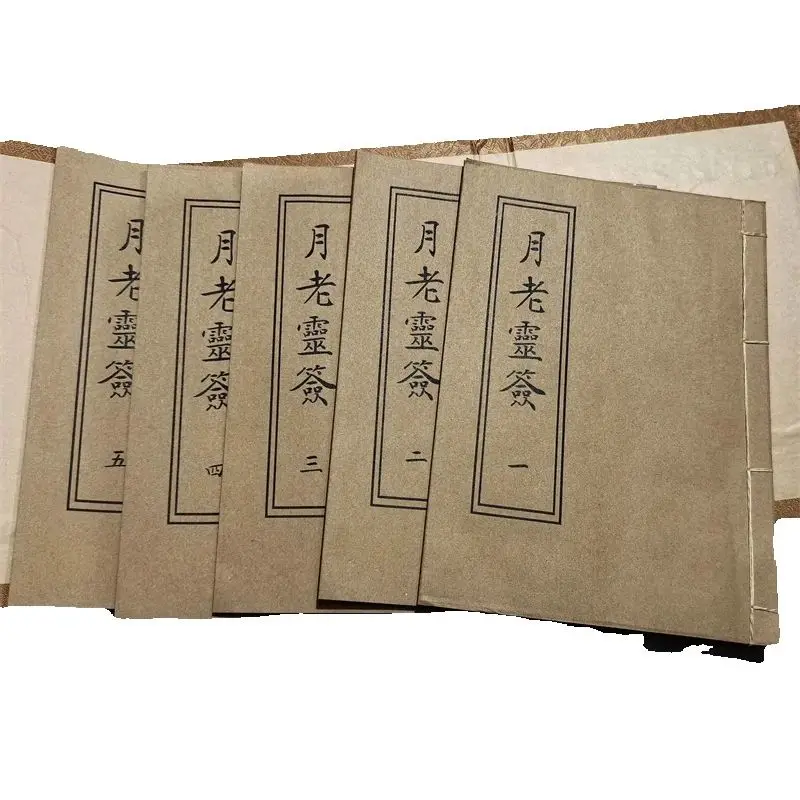 月老靈簽 五
月老靈簽 四
月老靈簽 三
月老靈簽 二
月老靈簽 一